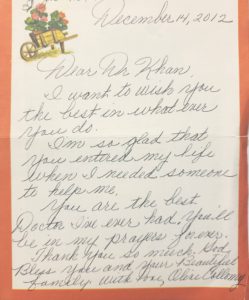 December 14, 2012
Dear Mr Khan,
I want to wish you
the best in what ever
you do.
I'm so glad that
you entered my life
when I needed someone
to help me.
You are the best
Doctor I've ever had you'll
be in my prayers forever.
Thank you so much, God
Bless you and your Beautiful
family with love,